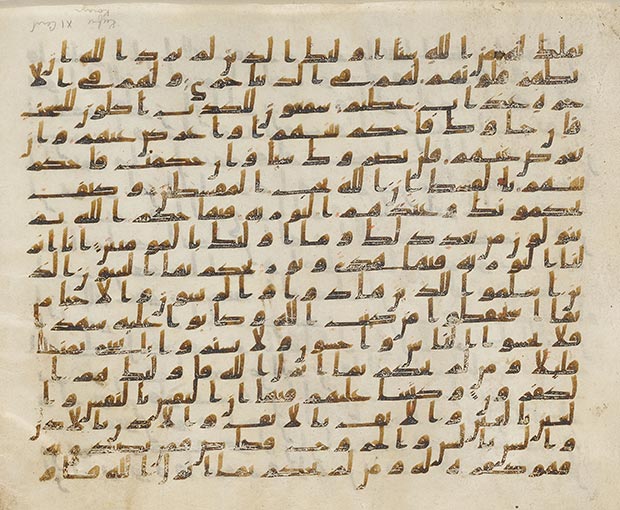 تملك له من الله شيا اوليك الذين لم يرد الله ان
يطهر قلوبهم لهم في الدنيا خزي ولهم في الا
خره عذاب عظيم سمعون للكذب اكلون للسحت
فان جاوك فاحكم بينهم او اعرض عنهم وان
تعرض عنهم فلن يضروك شيا وان حكمت فاحكم
بينهم بالقسط ان الله يحب المقسطين وكيف
يحكمونك وعندهم التوريه فيها حكم الله ثم
يتولون من بعد ذلك وما اوليك بالمومنين انا انز
لنا التوريه فيها هدى ونور يحكم بها النبيون الذ
ين اسلموا للذين هادوا والربنيون والاحبار
بما استحفظوا من كتب الله وكانوا عليه شهدا
فلا تخشوا الناس واخشون ولا تشتروا بايتي ثمنا
قليلا ومن لم يحكم بما انزل الله فاوليك هم ا
لكفرون وكتبنا عليهم فيها ان النفس بالنفس وا
لعين بالعين والانف بالانف والاذن بالاذن
والسن بالسن والجروح قصاص فمن تصدق به
فهو كفاره له ومن لم يحكم بما انزل الله فاو